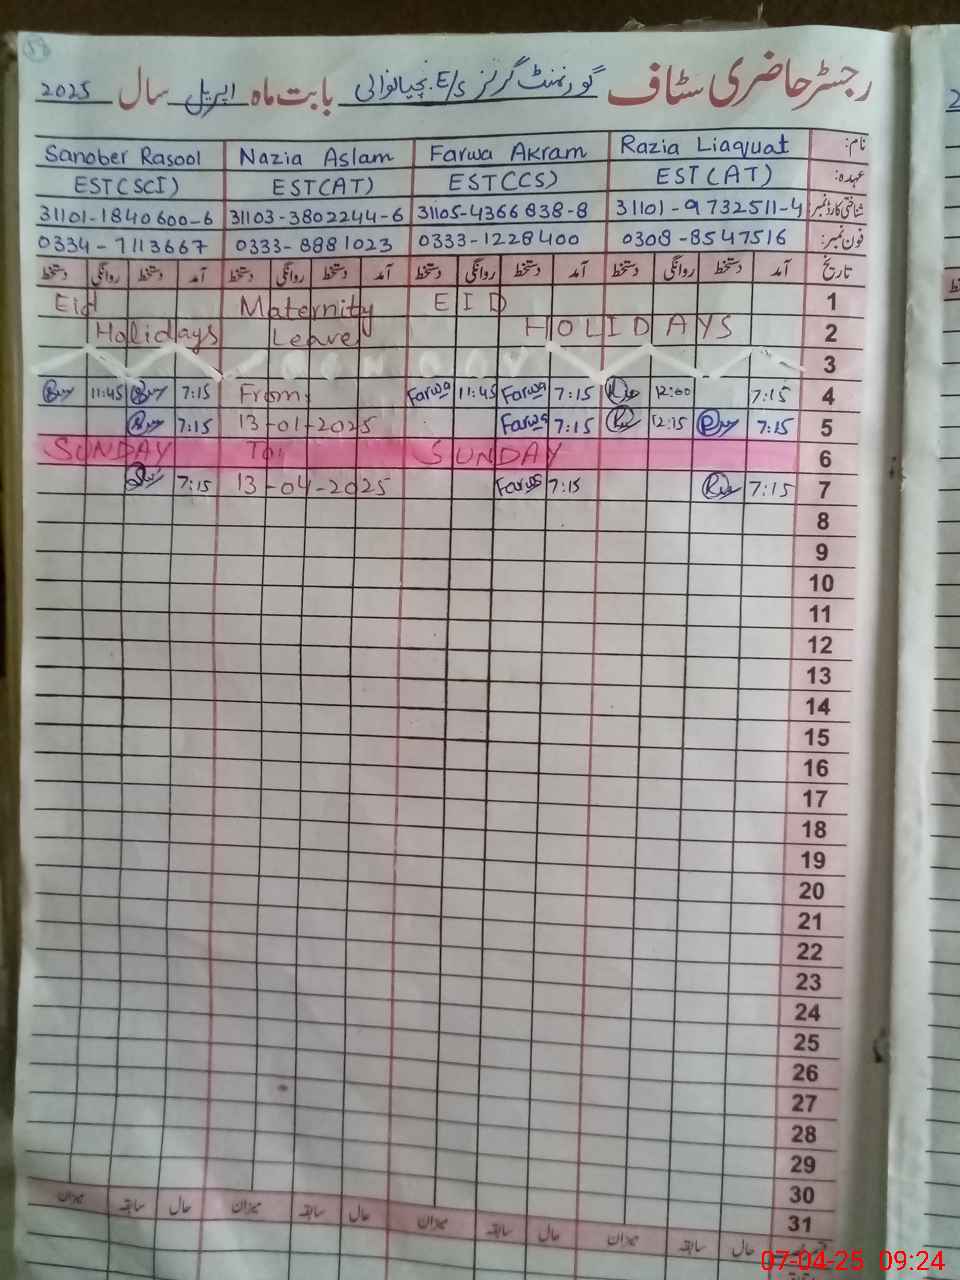 رجسٹر حاضری سٹاف گورنمنٹ گرلز E/S. بابت ماہ اپریل سال 2025
نام: Razia Liaquat Farwa Akram Nazia Aslam Sanober Rasool
عہدہ: EST(AT) EST(CS) EST(AT) EST(SCI)
شناختی کارڈ نمبر: 31101-9732511-4 31105-4366838-8 31103-3802244-6 31101-1840600-6
فون نمبر: 0308-8547516 0333-1228400 0333-8881023 0334-7113667
تاریخ آمد دستخط روانگی دستخط آمد دستخط روانگی دستخط آمد دستخط روانگی دستخط آمد دستخط روانگی دستخط
Eid Maternity EID 1
Holidays Leave HOLIDAYS 2
3
11:45 7:15 From Farwa 11:45 Farwa 7:15 12:00 7:15 4
7:15 13-01-2025 Farwa 7:15 12:15 7:15 5
SUNDAY To SUNDAY 6
7:15 13-04-2025 Farwa 7:15 7:15 7
8
9
10
11
12
13
14
15
16
17
18
19
20
21
22
23
24
25
26
27
28
29
30
31
حال سابقہ میزان حال سابقہ میزان حال سابقہ میزان حال سابقہ میزان
07-04-25 09:24